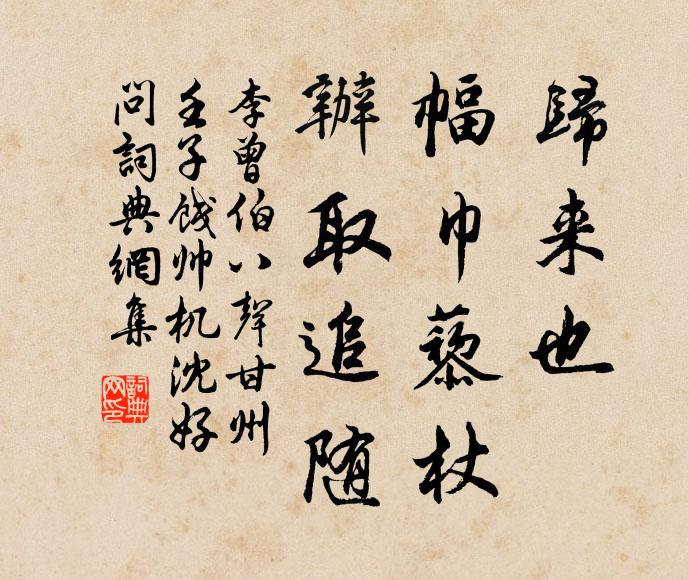 歸来也
幅巾藜杖
辦取追随
李曾伯八聲甘州
壬子餞帅机沈好
问詞典網集
詞典网印